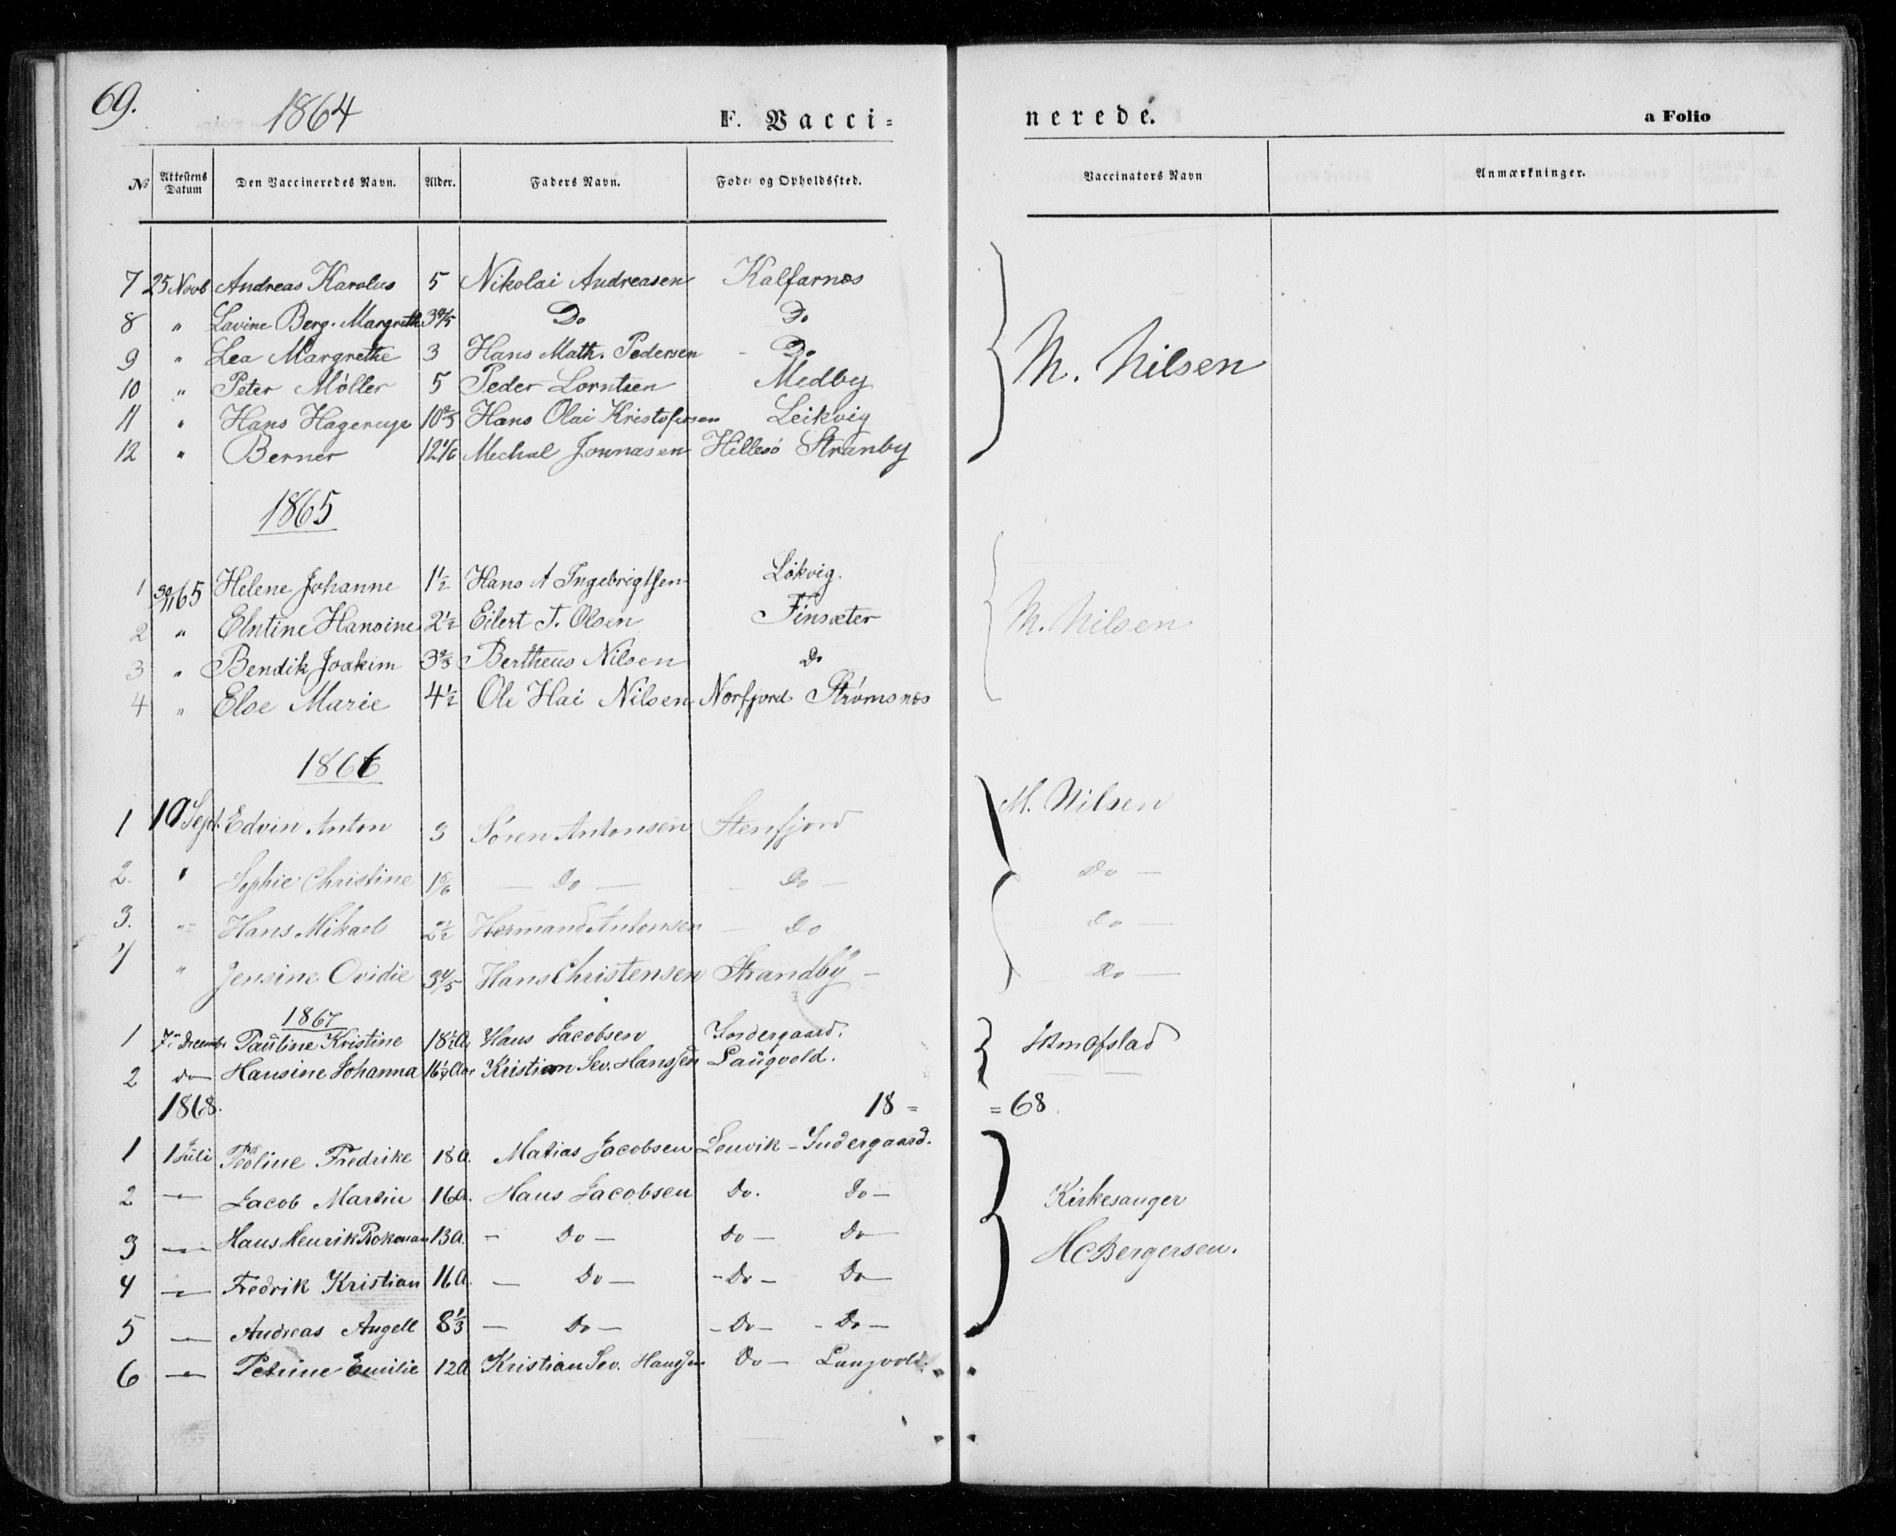 69. 1864 F. Vacci= nerede. a Folio
No Attestens Datum Den Vaccineredes Navn. Alder. Faders Navn. Føde- og Opholdssted. Vaccinators Navn Anmærkninger.
7 25 Novb Andreas Karolus 5 Nikolai Andreasen Kalfarnes
8 " Lavine Berg. Margrethe 3 4/5 Do Do
9 " Lea Margrethe 3 Hans Math. Pedersen - Do M. Nilsen
10 " Peter Møller 5 Peder Lorntsen Medby
11 " Hans Hagerup 10 2/3 Hans Olai Kristofersen Leikvig
12 " Berner 12 1/6 Mechal Jonnasen Hillesö Stranby
1865
1 30/11 65 Helene Johanne 1½ Hans A Ingebrigtsen Lökvig.
2 " Elntine Hansine 2½ Eilert T. Olsen Finsæter M. Nilsen
3 " Bendik Joakim 3 2/3 Bertheus Nilsen Do
4 " Else Marie 4½ Ole Hai Nilsen Norfjord Strømsnes
1866
1 10 Sept. Edvin Anton 3 Sören Antonsen Stenfjord M. Nilsen
2. " Sophie Christine 1 5/6 — Do — — Do — Do —
3. " Hans Mikael 2½ Hermand Antonsen — Do Do —
4 " Jensine Ovidie 3 4/5 Hans Christensen Strandby — Do —
1867
1 7de Decembr Pauline Kristine 18½ A. Hans Jacobsen Indergaard.
2 do Hansine Johanna 16¼ Aar Kristian Sev. Hanssen Langvold.
1868. 18 = = 68.
1 1 Juli Pauline Fredrike 18 A. Matias Jacobsen Lenvik - Indergaard.
2 — Jacob Martin 16 A. Hans Jacobsen Do. Do — Kirkesanger
3 — Hans Henrik 13 A. — Do — Do — Do — HC Bergersen.
4 — Fredrik Kristian 16 A. — Do — - Do — Do —
5 — Andreas Angell 8 1/3 — Do — - Do — - Do —
6 — Petrine Emilie 12 A Kristian Sev. Hanssen Do — Langvold.